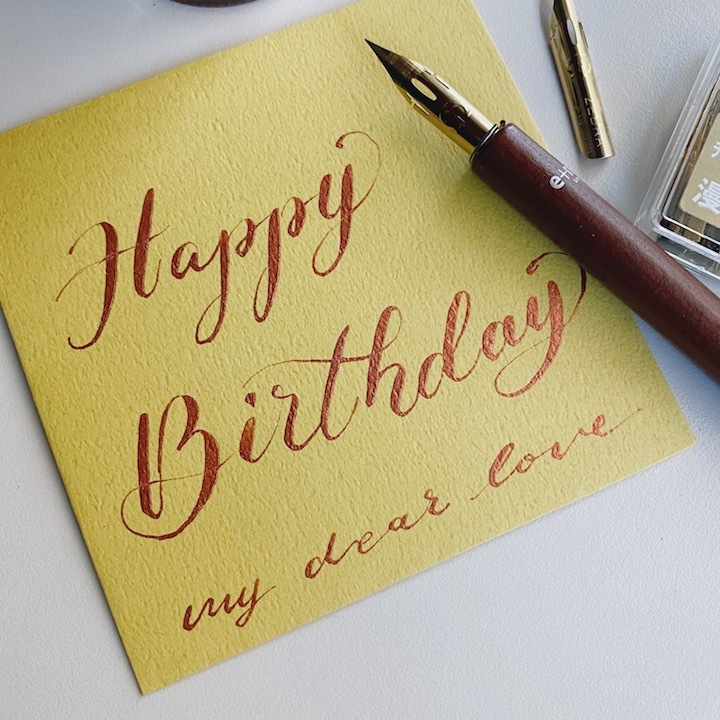 Happy
Birthday
my dear love
ZEBRA